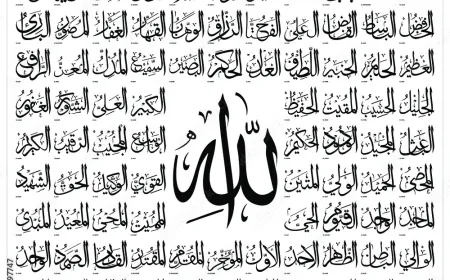 الخافض الباسط القابض العليم الفتاح الرزاق الوهاب القهار الغفار المصور البارئ
العظيم الحليم الخبير اللطيف العدل الحكم البصير السميع المذل المعز الرافع
الجليل الحسيب المقيت الحفيظ الكبير العلي الشكور الغفور
الباعث المجيد الودود الحكيم الواسع المجيب الرقيب الكريم
الله
المحصي الحميد الولي المتين القوي الوكيل الحق الشهيد
الماجد الواجد القيوم الحي المميت المحيي المعيد المبدئ
الوالي الباطن الظاهر الآخر الأول المؤخر المقدم المقتدر القادر الصمد الواحد